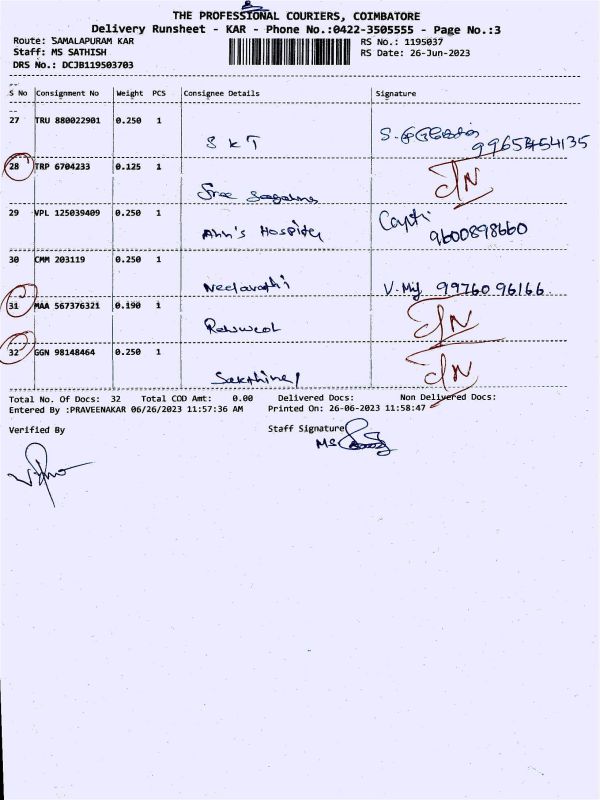 THE PROFESSIONAL COURIERS, COIMBATORE
Delivery Runsheet - KAR - Phone No.:0422-3505555 - Page No.:3
Route: SAMALAPURAM KAR
RS No.: 1195037
Staff: MS SATHISH
RS Date: 26-Jun-2023
DRS No.: DCJB119503703
S No Consignment No Weight PCS Consignee Details Signature
27 TRU 880022901 0.250 1
S K T 9965454135
28 TRP 6704233 0.125 1
Sree
29 VPL 125039409 0.250 1
Ann's Hospital 9600898660
30 CMM 203119 0.250 1
Neelavathi V. 99760 96166
31 MAA 567376321 0.190 1
32 GGN 98148464 0.250 1
Total No. Of Docs: 32 Total COD Amt: 0.00 Delivered Docs: Non Delivered Docs:
Entered By :PRAVEENAKAR 06/26/2023 11:57:36 AM Printed On: 26-06-2023 11:58:47
Verified By Staff Signature
MS